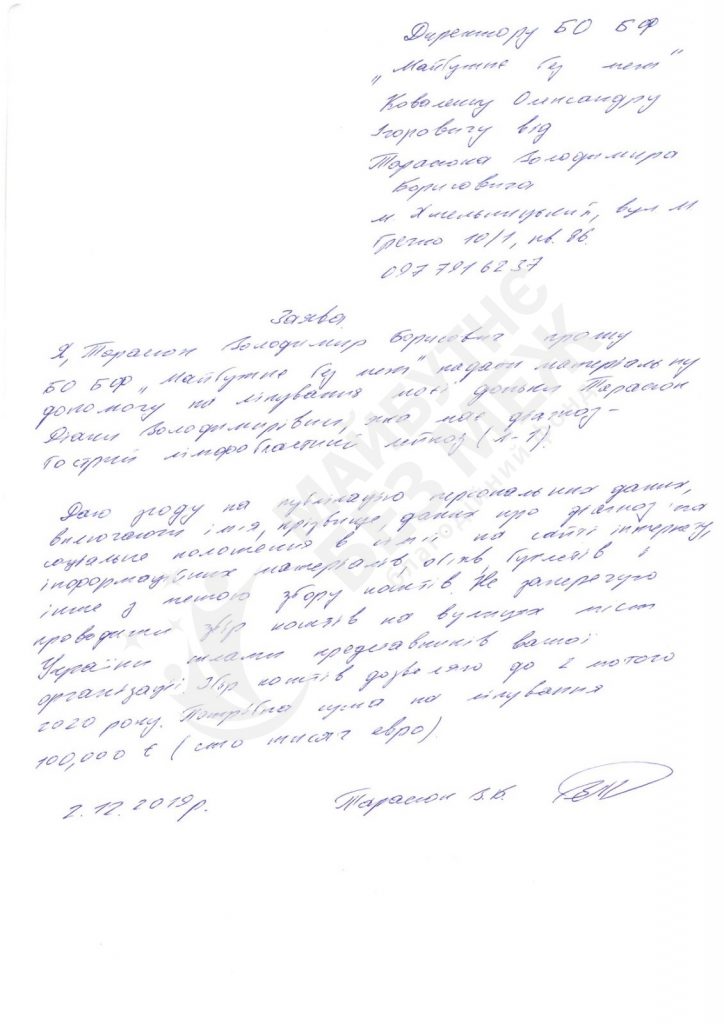 Директору БО БФ
„Майбутнє без меж"
Коваленку Олександру
Ігоровичу від
Тарасюка Володимира
Борисовича
м. Хмельницький, вул М
10/1, кв. 86.
097 791 62 37
Заява
Я, Тарасюк Володимир Борисович прошу
БО БФ „Майбутнє без меж" надати матеріальну
допомогу на лікування моєї доньки Тарасюк
Діани Володимирівни, яка має діагноз –
Гострий лімфобластний лейкоз
Даю згоду на публікацію персональних даних,
включаючи імя, прізвище, даних про діагноз та
соціальне положення в на сайті інтернету,
інформаційних матеріалів буклетів і
інше з метою збору коштів. Не заперечую
проводити збір коштів на вулицях міст
України силами представників вашої
організації. Збір коштів дозволяю до 2 лютого
2020 року. Потрібна сума на лікування
100,000 € (сто тисяч евро).
2.12.2019р.
Тарасюк В.Б.
МАЙБУТНЄ
БЕЗ МЕЖ
Благодійний фонд